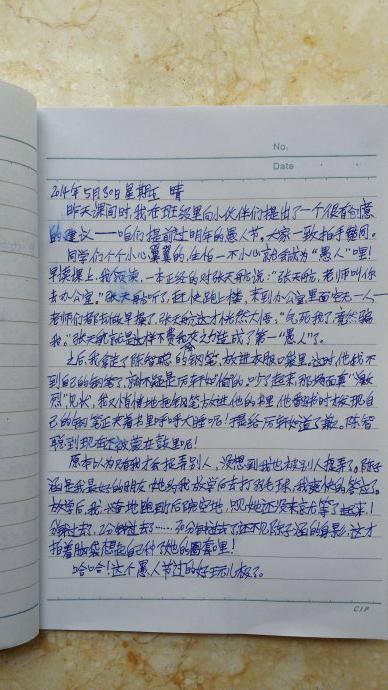 No.
Date
2014年5月30日 星期五 晴
昨天课间时,我在班级里向小伙伴们提出了一个很有创意
的建议——咱们提前过明年的愚人节。大家一致拍手
同学们个个小心翼翼的生怕一不小心就会成为“愚人”哩!
早读课上,我一本正经的对张天航说:“张天航,老师叫你
去办公室。”张天航听了,赶快跑上楼,来到办公室里面空无一人——
老师们都去做早操了,张天航这才恍然大悟,“气死我了竟然骗
我。”张天航就是这样不费我吹灰之力变成了第一“愚人”了。
之后,我拿走了陈智聪的钢笔,放进衣服口袋里,这时,他找不
到自己的钢笔了,就吵了起来,那场面真“激
烈”,我又悄悄地把钢笔放进他的书里,他翻书时发现自
己的钢笔正夹着书里呼呼大睡呢!陈智
聪到现在还被蒙在鼓里呢!
原本以为只有我才会捉弄别人,没想到我也被别人捉弄了。陈子
涵是我最好的朋友,她约我放学后去打羽毛球,我爽快的答应了。
放学后,我一个人跑到后院空地,见她还没来就等了起来,1
分钟过去了,2分钟过去了……30分钟过去了还不见陈子涵的身影,这才
拍着脑袋想起自己行了她的圈套哩!
哈哈!这个愚人节过的好玩儿极了。